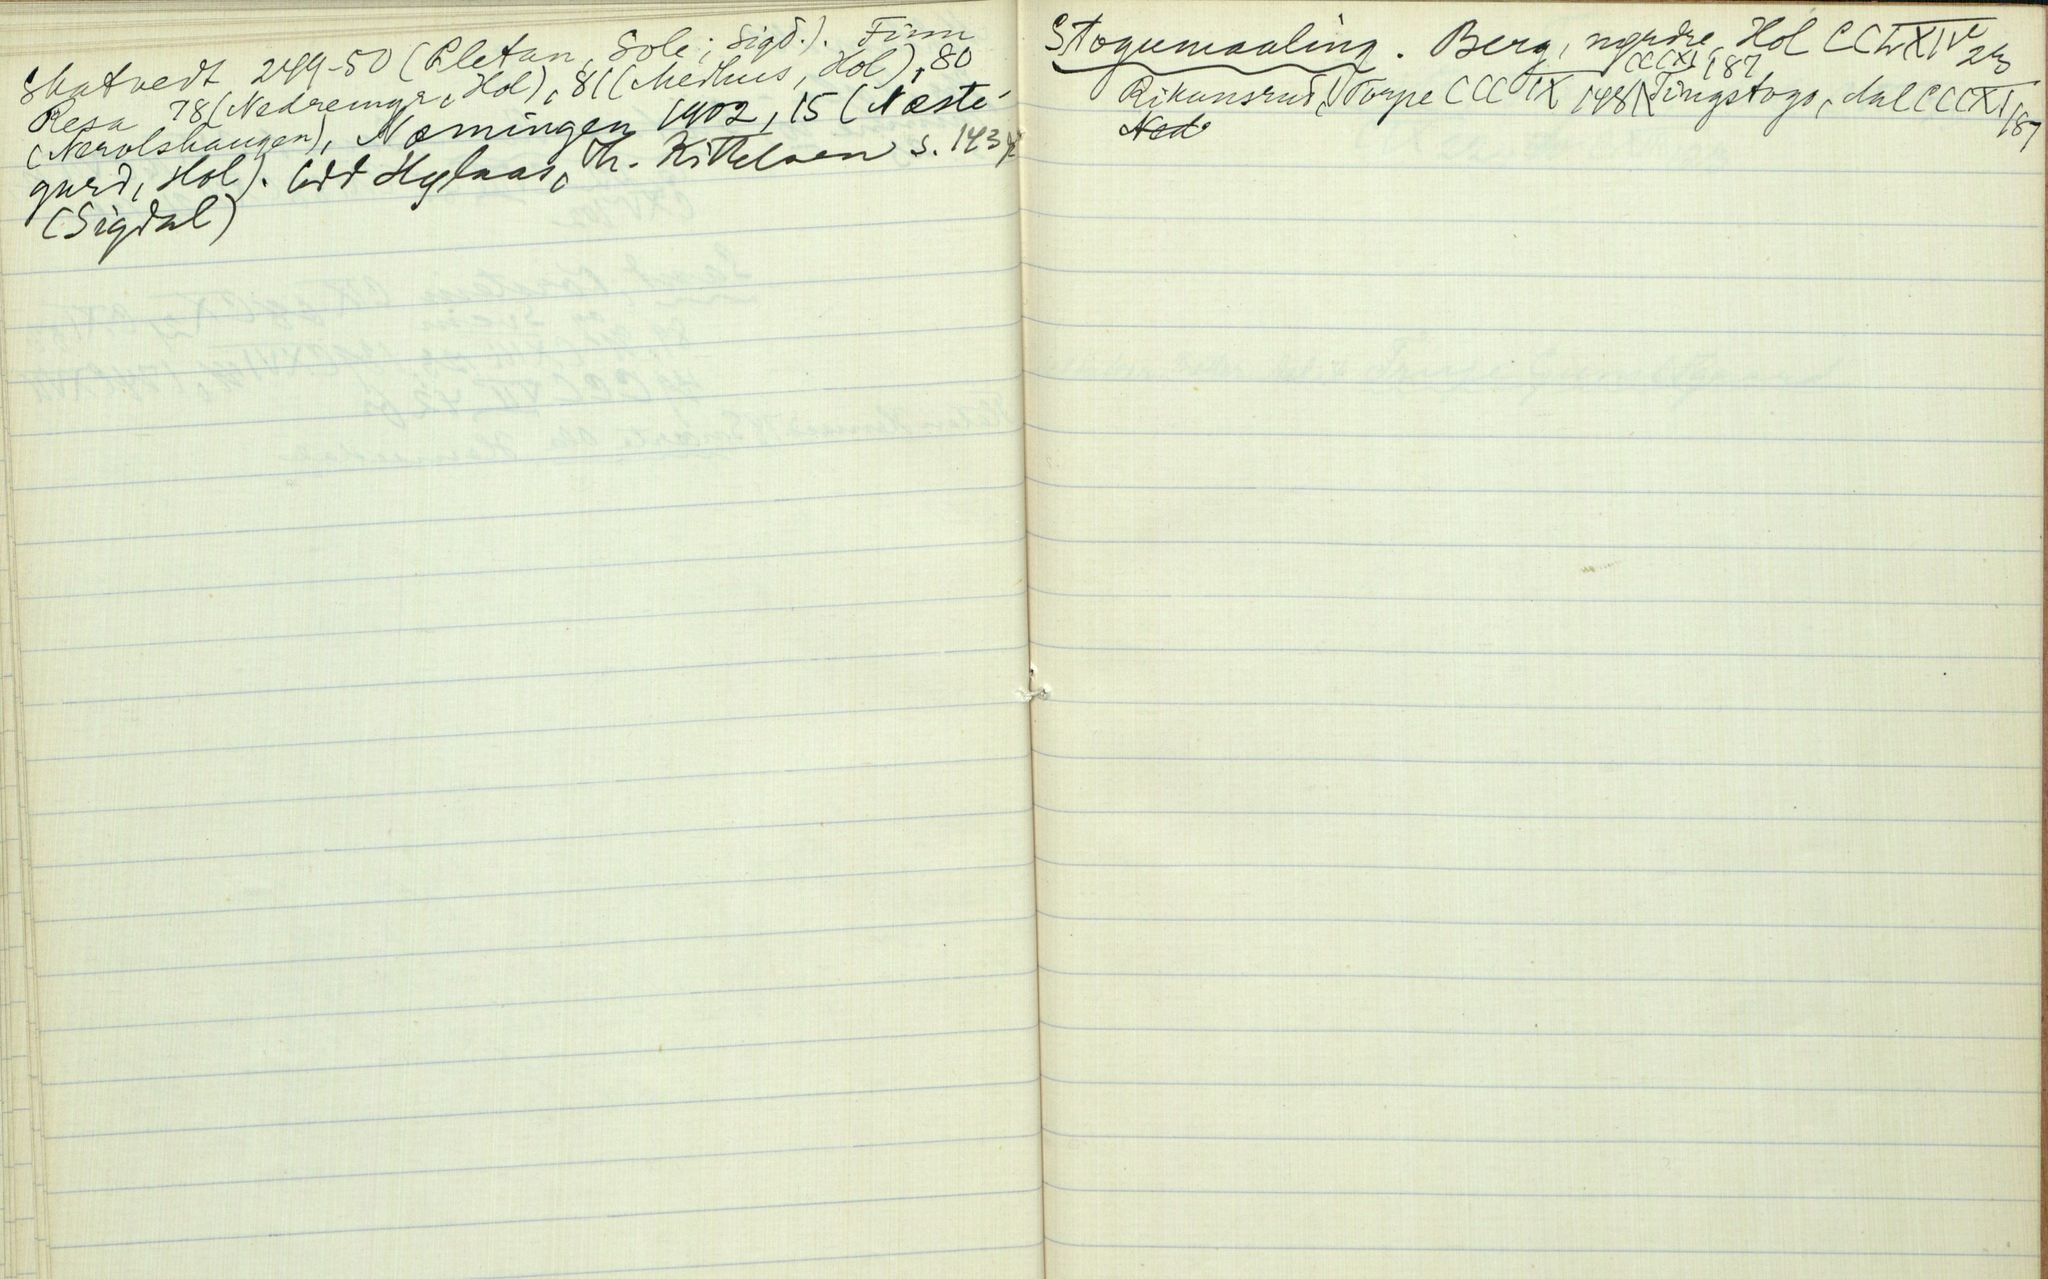 Skatvedt 249-50 (Pletan, Sole; Sigd.). Finn
Resa 78 (Nedremyr, Hol), 81 (Medhus, Hol), 80
(Nerolshaugen), Næmingen 1902, 15 (Næste-
gard, Hol). Odd Hylaas, Th. Kittelsen s. 143
(Sigdal)
Stoguemaaling. Berg, nørdre, Hol CCLXIV 23
CCCXI, 87
Rikansrud, Torpe CCCIX 148, Tingstogo, Aal CCCXI, 87
Ned